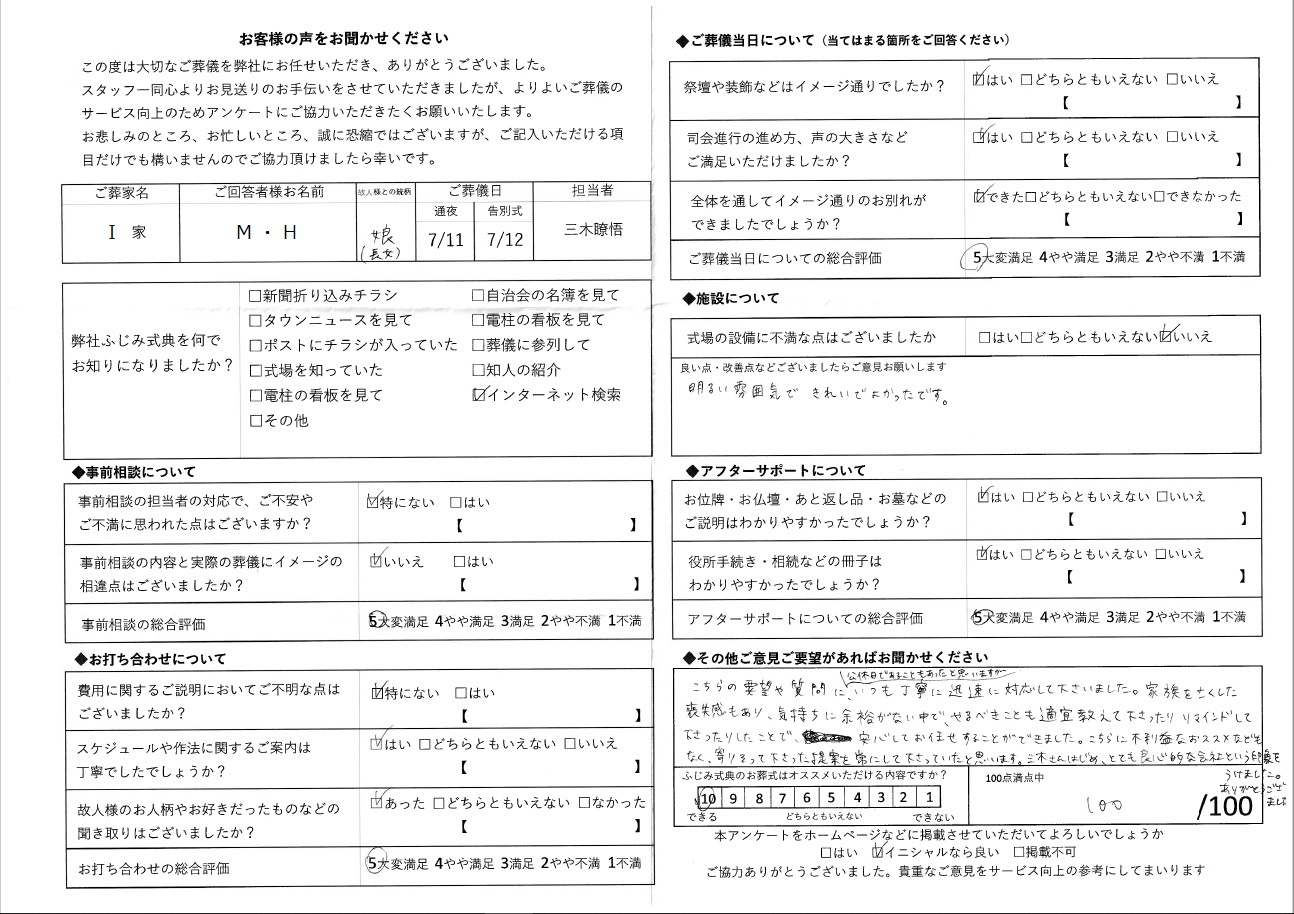 お客様の声をお聞かせください
この度は大切なご葬儀を弊社にお任せいただき、ありがとうございました。
スタッフ一同心よりお見送りのお手伝いをさせていただきましたが、よりよいご葬儀の
サービス向上のためアンケートにご協力いただきたくお願いいたします。
お悲しみのところ、お忙しいところ、誠に恐縮ではございますが、ご記入いただける項
目だけでも構いませんのでご協力頂けましたら幸いです。
ご葬家名 ご回答者様お名前 故人様との続柄 ご葬儀日 担当者
通夜 告別式
I 家 M・H 娘 7/11 7/12 三木暸悟
(長女)
弊社ふじみ式典を何で
お知りになりましたか？
□新聞折り込みチラシ □自治会の名簿を見て
□タウンニュースを見て □電柱の看板を見て
□ポストにチラシが入っていた □葬儀に参列して
□式場を知っていた □知人の紹介
□電柱の看板を見て ☑インターネット検索
□その他
◆事前相談について
事前相談の担当者の対応で、ご不安や
ご不満に思われた点はございますか？
☑特にない □はい
【 】
事前相談の内容と実際の葬儀にイメージの
相違点はございましたか？
☑いいえ □はい
【 】
事前相談の総合評価 5大変満足 4やや満足 3満足 2やや不満 1不満
◆お打ち合わせについて
費用に関するご説明においてご不明な点は
ございましたか？
☑特にない □はい
【 】
スケジュールや作法に関するご案内は
丁寧でしたでしょうか？
☑はい □どちらともいえない □いいえ
【 】
故人様のお人柄やお好きだったものなどの
聞き取りはございましたか？
☑あった □どちらともいえない □なかった
【 】
お打ち合わせの総合評価 5大変満足 4やや満足 3満足 2やや不満 1不満
◆ご葬儀当日について（当てはまる箇所をご回答ください）
祭壇や装飾などはイメージ通りでしたか？
☑はい □どちらともいえない □いいえ
【 】
司会進行の進め方、声の大きさなど
ご満足いただけましたか？
☑はい □どちらともいえない □いいえ
【 】
全体を通してイメージ通りのお別れが
できましたでしょうか？
☑できた□どちらともいえない□できなかった
【 】
ご葬儀当日についての総合評価 5大変満足 4やや満足 3満足 2やや不満 1不満
◆施設について
式場の設備に不満な点はございましたか □はい□どちらともいえない☑いいえ
良い点・改善点などございましたらご意見お願いします
明るい雰囲気で きれいでよかったです。
◆アフターサポートについて
お位牌・お仏壇・あと返し品・お墓などの
ご説明はわかりやすかったでしょうか？
☑はい □どちらともいえない □いいえ
【 】
役所手続き・相続などの冊子は
わかりやすかったでしょうか？
☑はい □どちらともいえない □いいえ
【 】
アフターサポートについての総合評価 5大変満足 4やや満足 3満足 2やや不満 1不満
◆その他ご意見ご要望があればお聞かせください
公休日であることもあったと思いますが
こちらの要望や質問に、いつも丁寧に迅速に対応して下さいました。家族を亡くした
喪失感もあり、気持ちに余裕がない中で、やるべきことも適宜教えて下さったりリマインドして
下さったりしたことで、安心してお任せすることができました。こちらに不利益なおススメなども
なく、寄りそって下さった提案を常にして下さっていたと思います。三木さんはじめ、とても良心的な会社という印象を
うけました。
ありがとうござい
ました
ふじみ式典のお葬式はオススメいただける内容ですか？
10 9 8 7 6 5 4 3 2 1
できる どちらともいえない できない
100点満点中
100 /100
本アンケートをホームページなどに掲載させていただいてよろしいでしょうか
□はい ☑イニシャルなら良い □掲載不可
ご協力ありがとうございました。貴重なご意見をサービス向上の参考にしてまいります